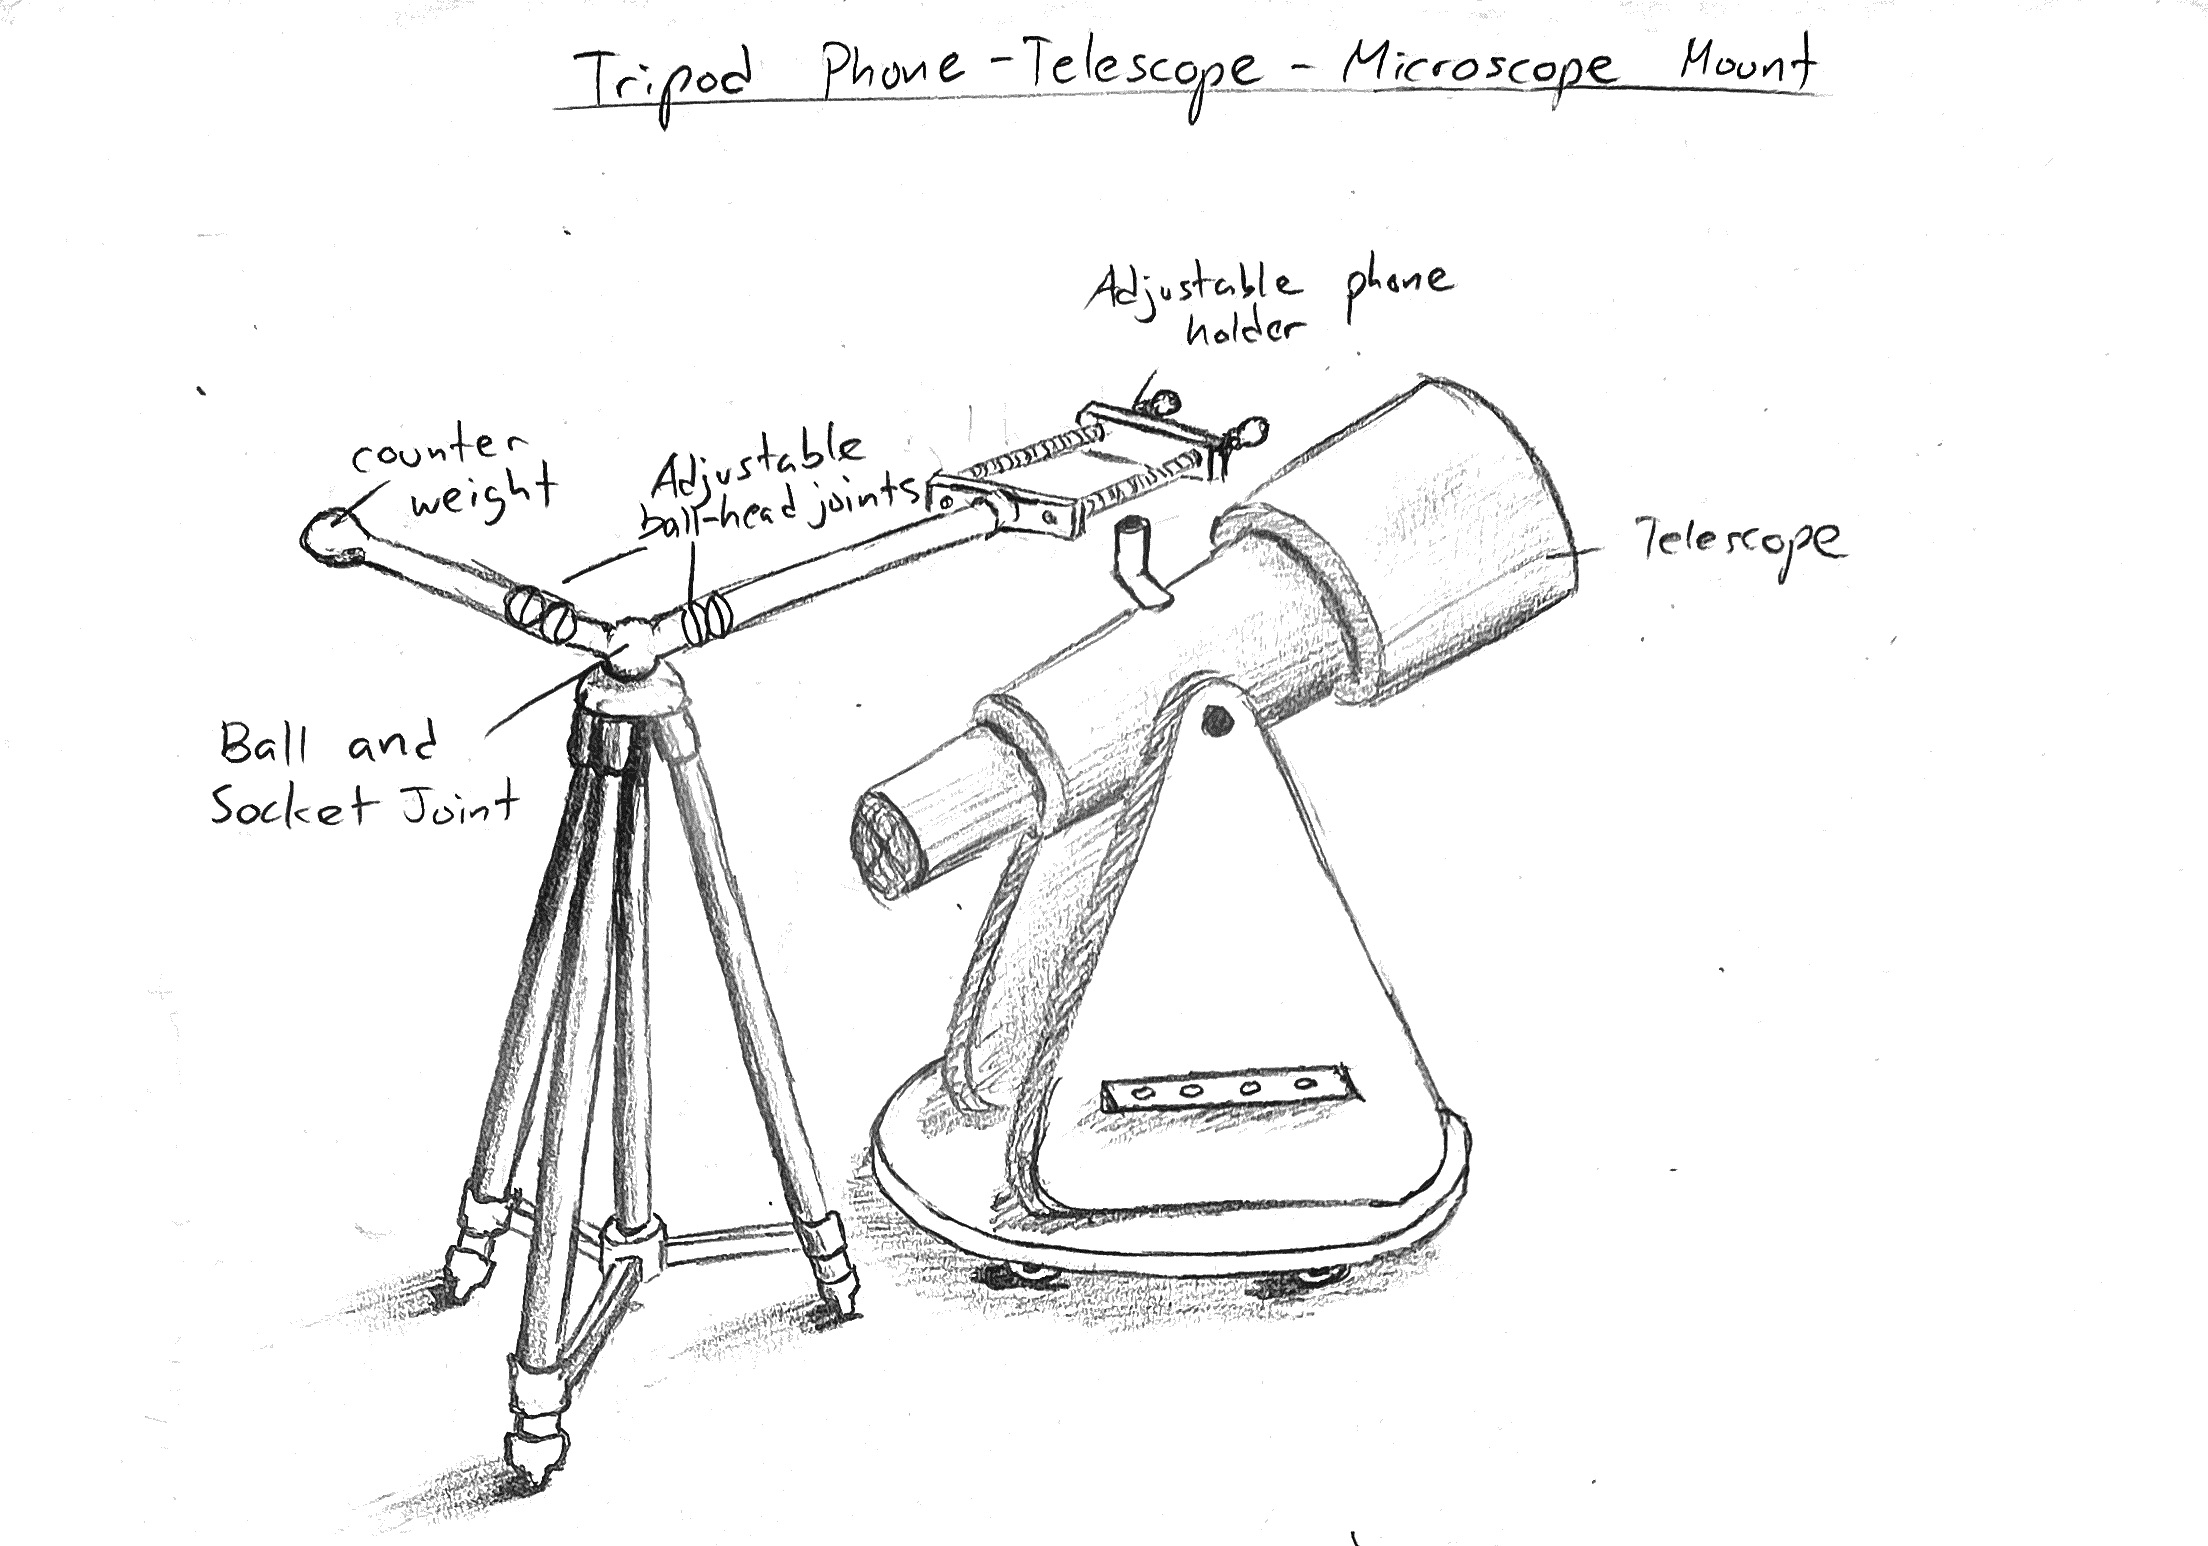 Tripod Phone-Telescope-Microscope Mount
Adjustable phone
holder
counter
weight
Adjustable
ball-head joints
Telescope
Ball and
Socket Joint